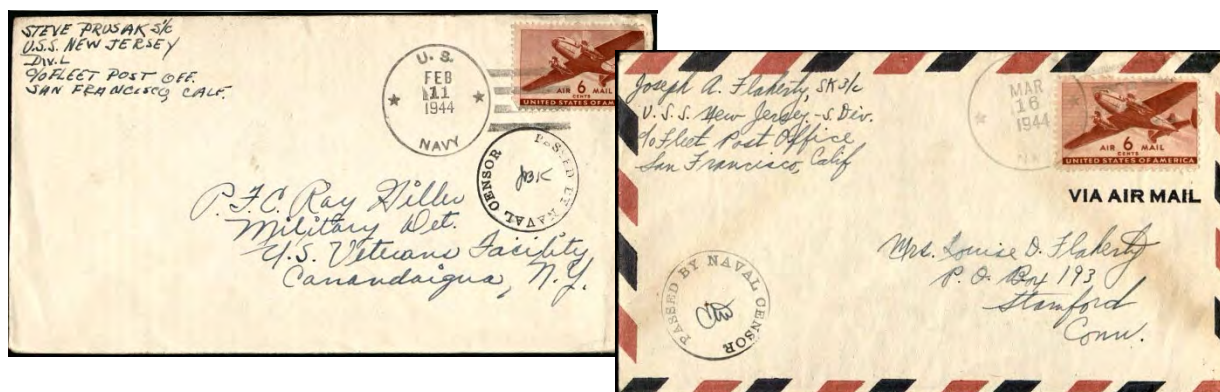 STEVE PRUSAK S/c
U.S.S. NEW JERSEY
DIV. L
c/o FLEET POST OFF.
SAN FRANCISCO, CALF.
U. S.
FEB
11
1944
NAVY
AIR 6 MAIL
CENTS
UNITED STATES OF AM
PASSED BY NAVAL CENSOR
JBK
P.F.C. Ray Hiller
Military Det.
U.S. Veterans Facility
Canandaigua, N.Y.
Joseph A. Flaherty, SK3/c
U.S.S. New Jersey - S. Div.
c/o Fleet Post Office
San Francisco, Calif
MAR
16
1944
AIR 6 MAIL
CENTS
UNITED STATES OF AMERICA
VIA AIR MAIL
Mrs. Louise D. Flaherty
P. O. Box 193
Stamford
Conn.
PASSED BY NAVAL CENSOR